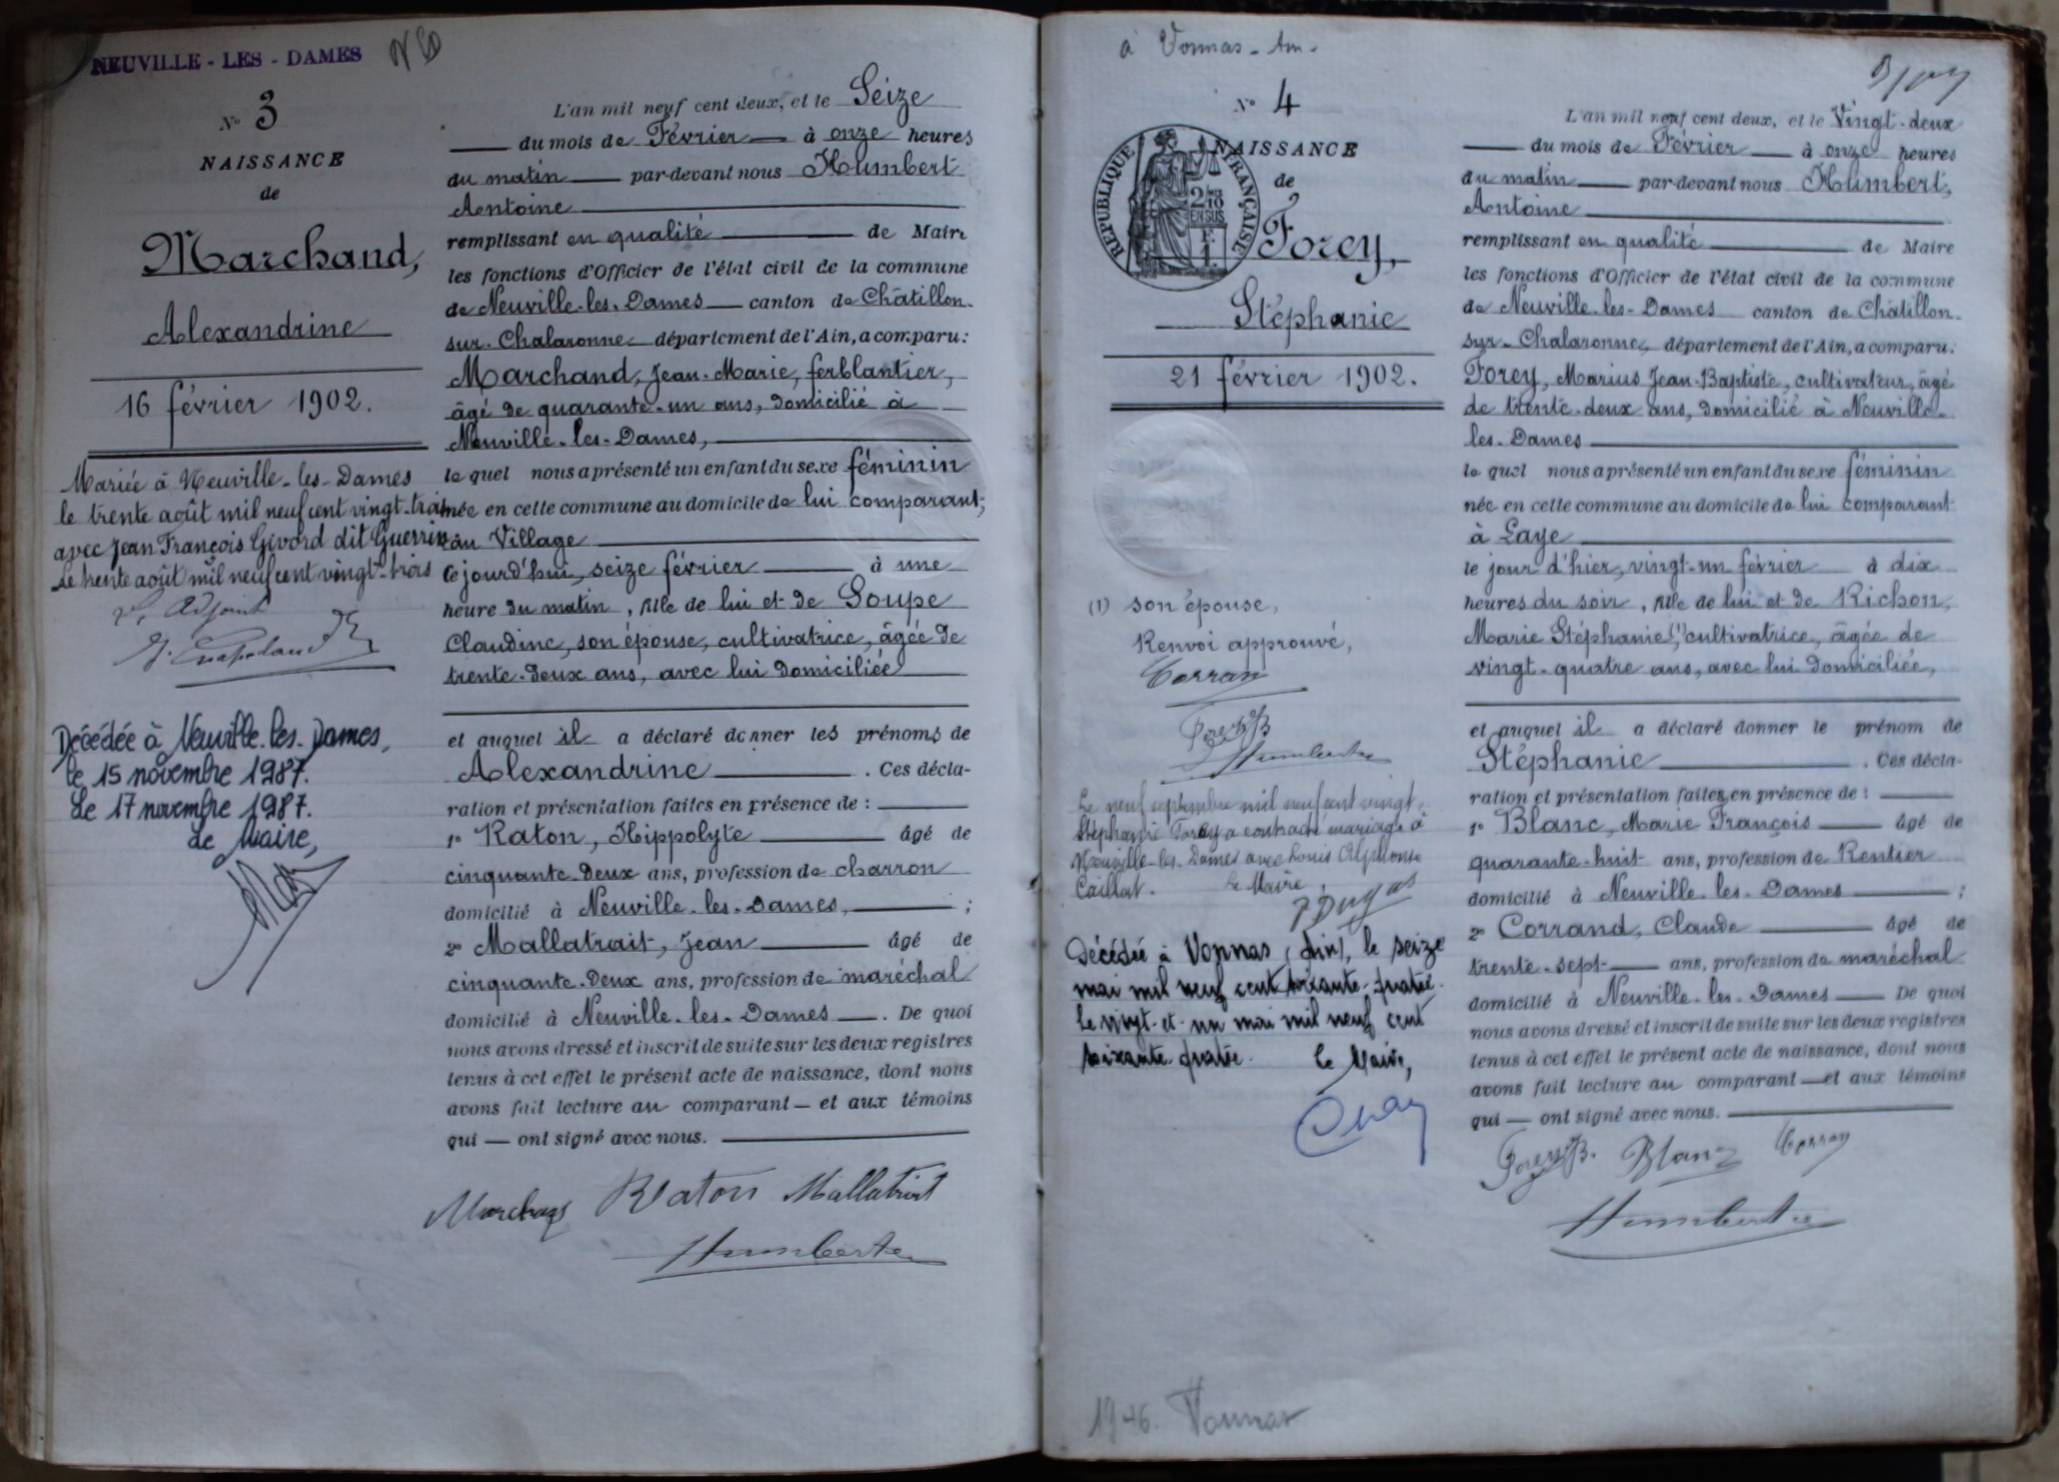 NEUVILLE - LES - DAMES
N° 3
NAISSANCE
de
Marchand,
Alexandrine
16 février 1902.
Mariée à Neuville-les-Dames
le trente août mil neuf cent vingt-trois
avec Jean François Givord dit Guerrin
Le trente août mil neuf cent vingt-trois
L'Adjoint
Décédée à Neuville-les-Dames,
le 15 novembre 1987.
Le 17 novembre 1987.
Le Maire,
L'an mil neuf cent deux, et le Seize
du mois de Février à onze heures
du matin par-devant nous Humbert
Antoine
remplissant en qualité de Maire
les fonctions d'Officier de l'état civil de la commune
de Neuville-les-Dames canton de Châtillon-
sur-Chalaronne département de l'Ain, a comparu:
Marchand, Jean-Marie, ferblantier,
âgé de quarante-un ans, domicilié à
Neuville-les-Dames,
le quel nous a présenté un enfant du sexe féminin
née en cette commune au domicile de lui comparant,
au Village
ce jourd'hui, seize février à une
heure du matin, fille de lui et de Soupe
Claudine, son épouse, cultivatrice, âgée de
trente-deux ans, avec lui domiciliée
et auquel il a déclaré donner les prénoms de
Alexandrine. Ces décla-
ration et présentation faites en présence de :
1° Raton, Hippolyte âgé de
cinquante-deux ans, profession de charron
domicilié à Neuville-les-Dames, ;
2° Mallatrait, Jean âgé de
cinquante-deux ans, profession de maréchal
domicilié à Neuville-les-Dames. De quoi
nous avons dressé et inscrit de suite sur les deux registres
tenus à cet effet le présent acte de naissance, dont nous
avons fait lecture au comparant — et aux témoins
qui — ont signé avec nous.
Marchand Raton Mallatrait
Humbert
à Vonnas - Ain -
N° 4
NAISSANCE
RÉPUBLIQUE FRANÇAISE
2/10
EN SUS
de
Forey,
Stéphanie
21 février 1902.
(1) son épouse,
Renvoi approuvé,
Corran
Forey JB
Humbert
Le neuf septembre mil neuf cent vingt,
Stéphanie Forey a contracté mariage à
Neuville-les-Dames avec Louis Alphonse
Caillat. Le Maire,
Décédée à Vonnas (Ain), le seize
mai mil neuf cent soixante-quatre.
Le vingt-et-un mai mil neuf cent
soixante-quatre. Le Maire,
1946. Vonnas
L'an mil neuf cent deux, et le Vingt-deux
du mois de Février à onze heures
du matin par-devant nous Humbert,
Antoine
remplissant en qualité de Maire
les fonctions d'Officier de l'état civil de la commune
de Neuville-les-Dames canton de Châtillon-
sur-Chalaronne, département de l'Ain, a comparu:
Forey, Marius Jean-Baptiste, cultivateur, âgé
de trente-deux ans, domicilié à Neuville-
les-Dames
le quel nous a présenté un enfant du sexe féminin
née en cette commune au domicile de lui comparant
à Laye
le jour d'hier, vingt-un février à dix
heures du soir, fille de lui et de Richon,
Marie Stéphanie(1), cultivatrice, âgée de
vingt-quatre ans, avec lui domiciliée,
et auquel il a déclaré donner le prénom de
Stéphanie. Ces décla-
ration et présentation faites en présence de :
1° Blanc, Marie François âgé de
quarante-huit ans, profession de Rentier
domicilié à Neuville-les-Dames ;
2° Corrand, Claude âgé de
trente-sept ans, profession de maréchal
domicilié à Neuville-les-Dames De quoi
nous avons dressé et inscrit de suite sur les deux registres
tenus à cet effet le présent acte de naissance, dont nous
avons fait lecture au comparant — et aux témoins
qui — ont signé avec nous.
Forey JB. Blanc Corran
Humbert